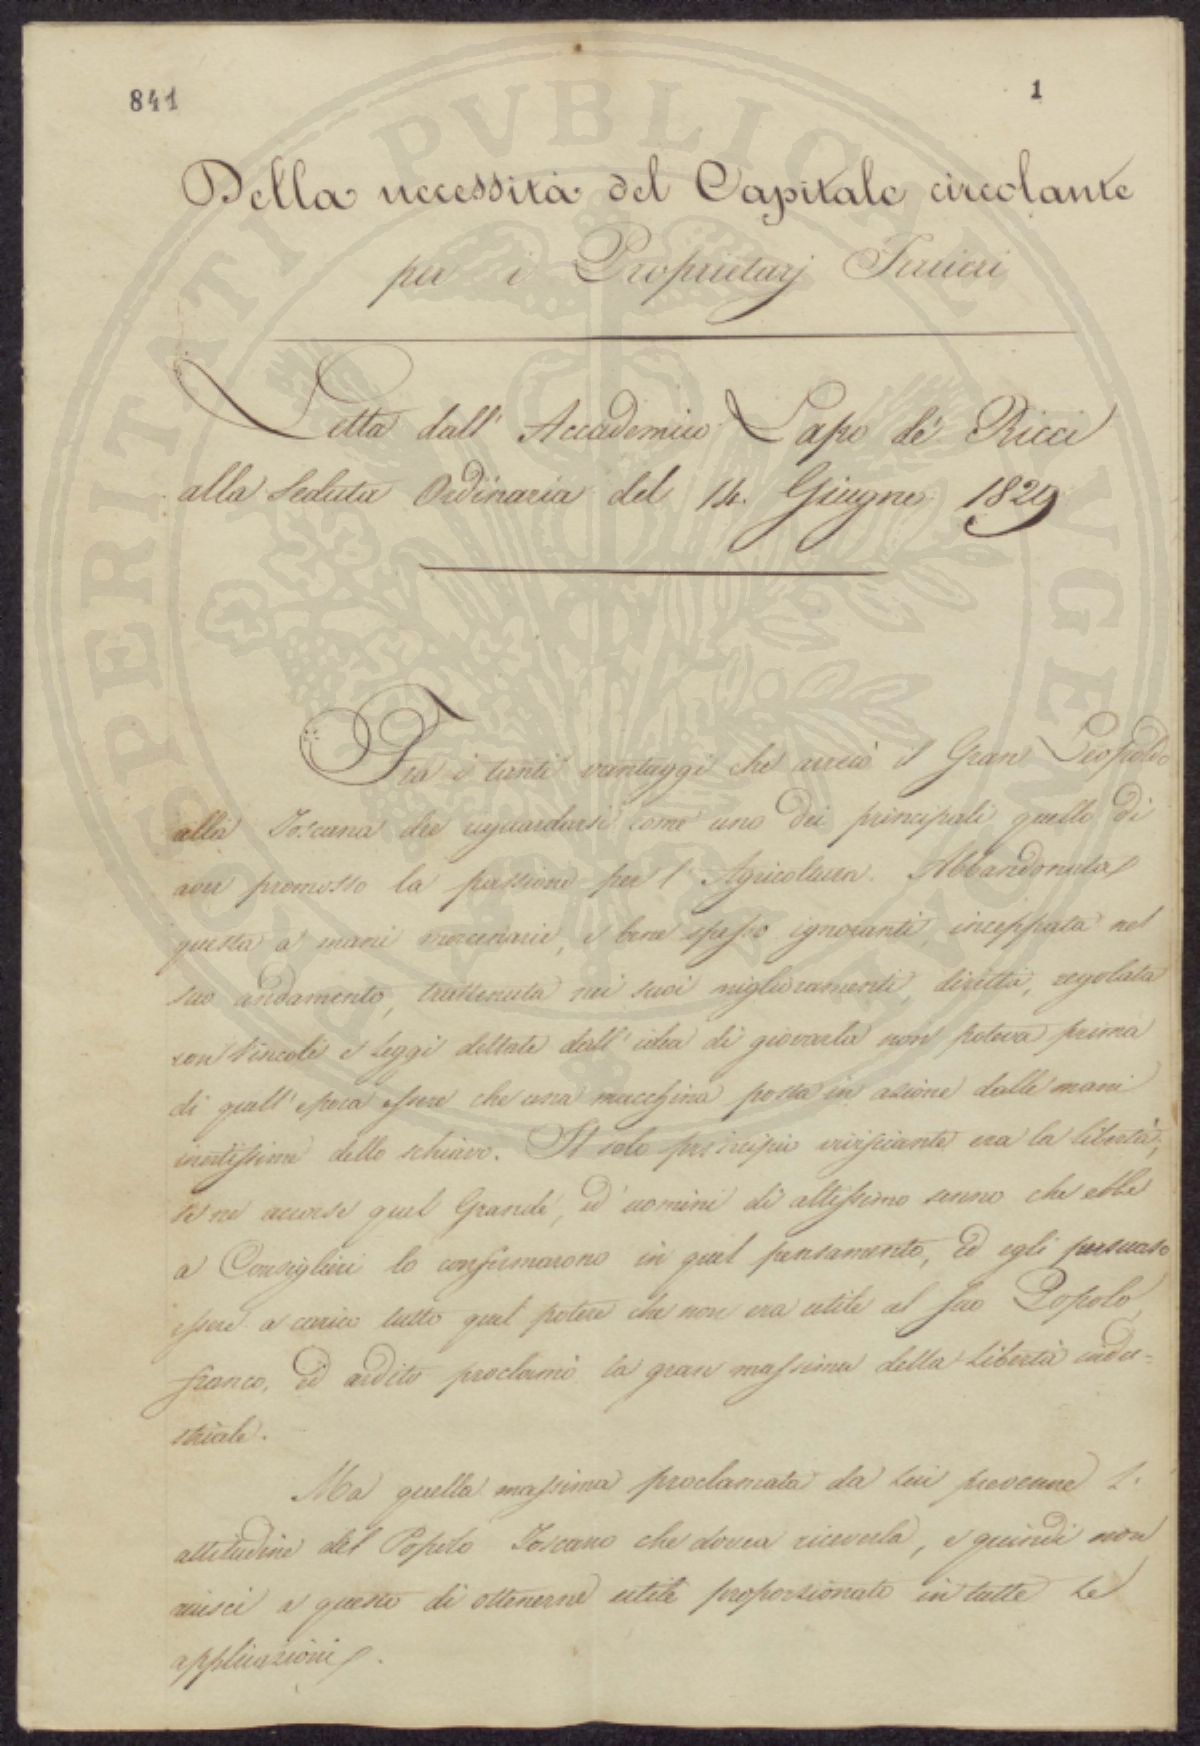 841
1
Della necessità del Capitale circolante
per i Proprietarj Terrieri
Letta dall' Accademico Lapo de' Ricci
alla Seduta Ordinaria del 14. Giugno 1829
Fra i tanti vantaggi che arrecò il Gran Leopoldo
alla Toscana dee riguardarsi come uno dei principali quello di
aver promosso la passione per l' Agricoltura. Abbandonata
questa a mani mercenarie, e bene spesso ignoranti, inceppata nel
suo andamento, trattenuta nei suoi miglioramenti, diretta, regolata
con Vincoli e Leggi dettate dall' idea di giovarla non poteva prima
di quell' epoca essere che una macchina posta in azione dalle mani
inertissime dello schiavo. Il solo principio vivificante era la libertà,
se ne accorse quel Grande, ed uomini di altissimo senno che ebbe
a Consiglieri lo confermarono in quel pensamento, ed egli persuaso
essere a carico tutto quel potere che non era utile al suo Popolo,
franco, ed ardito proclamò la gran massima della Libertà indu-
striale.
Ma quella massima proclamata da Lui prevenne l'
attitudine del Popolo Toscano che dovea riceverla, e quindi non
riuscì a questo di ottenerne utile proporzionato in tutte le
applicazioni.
PROSPERITATI PVBLICAE AVGENDAE